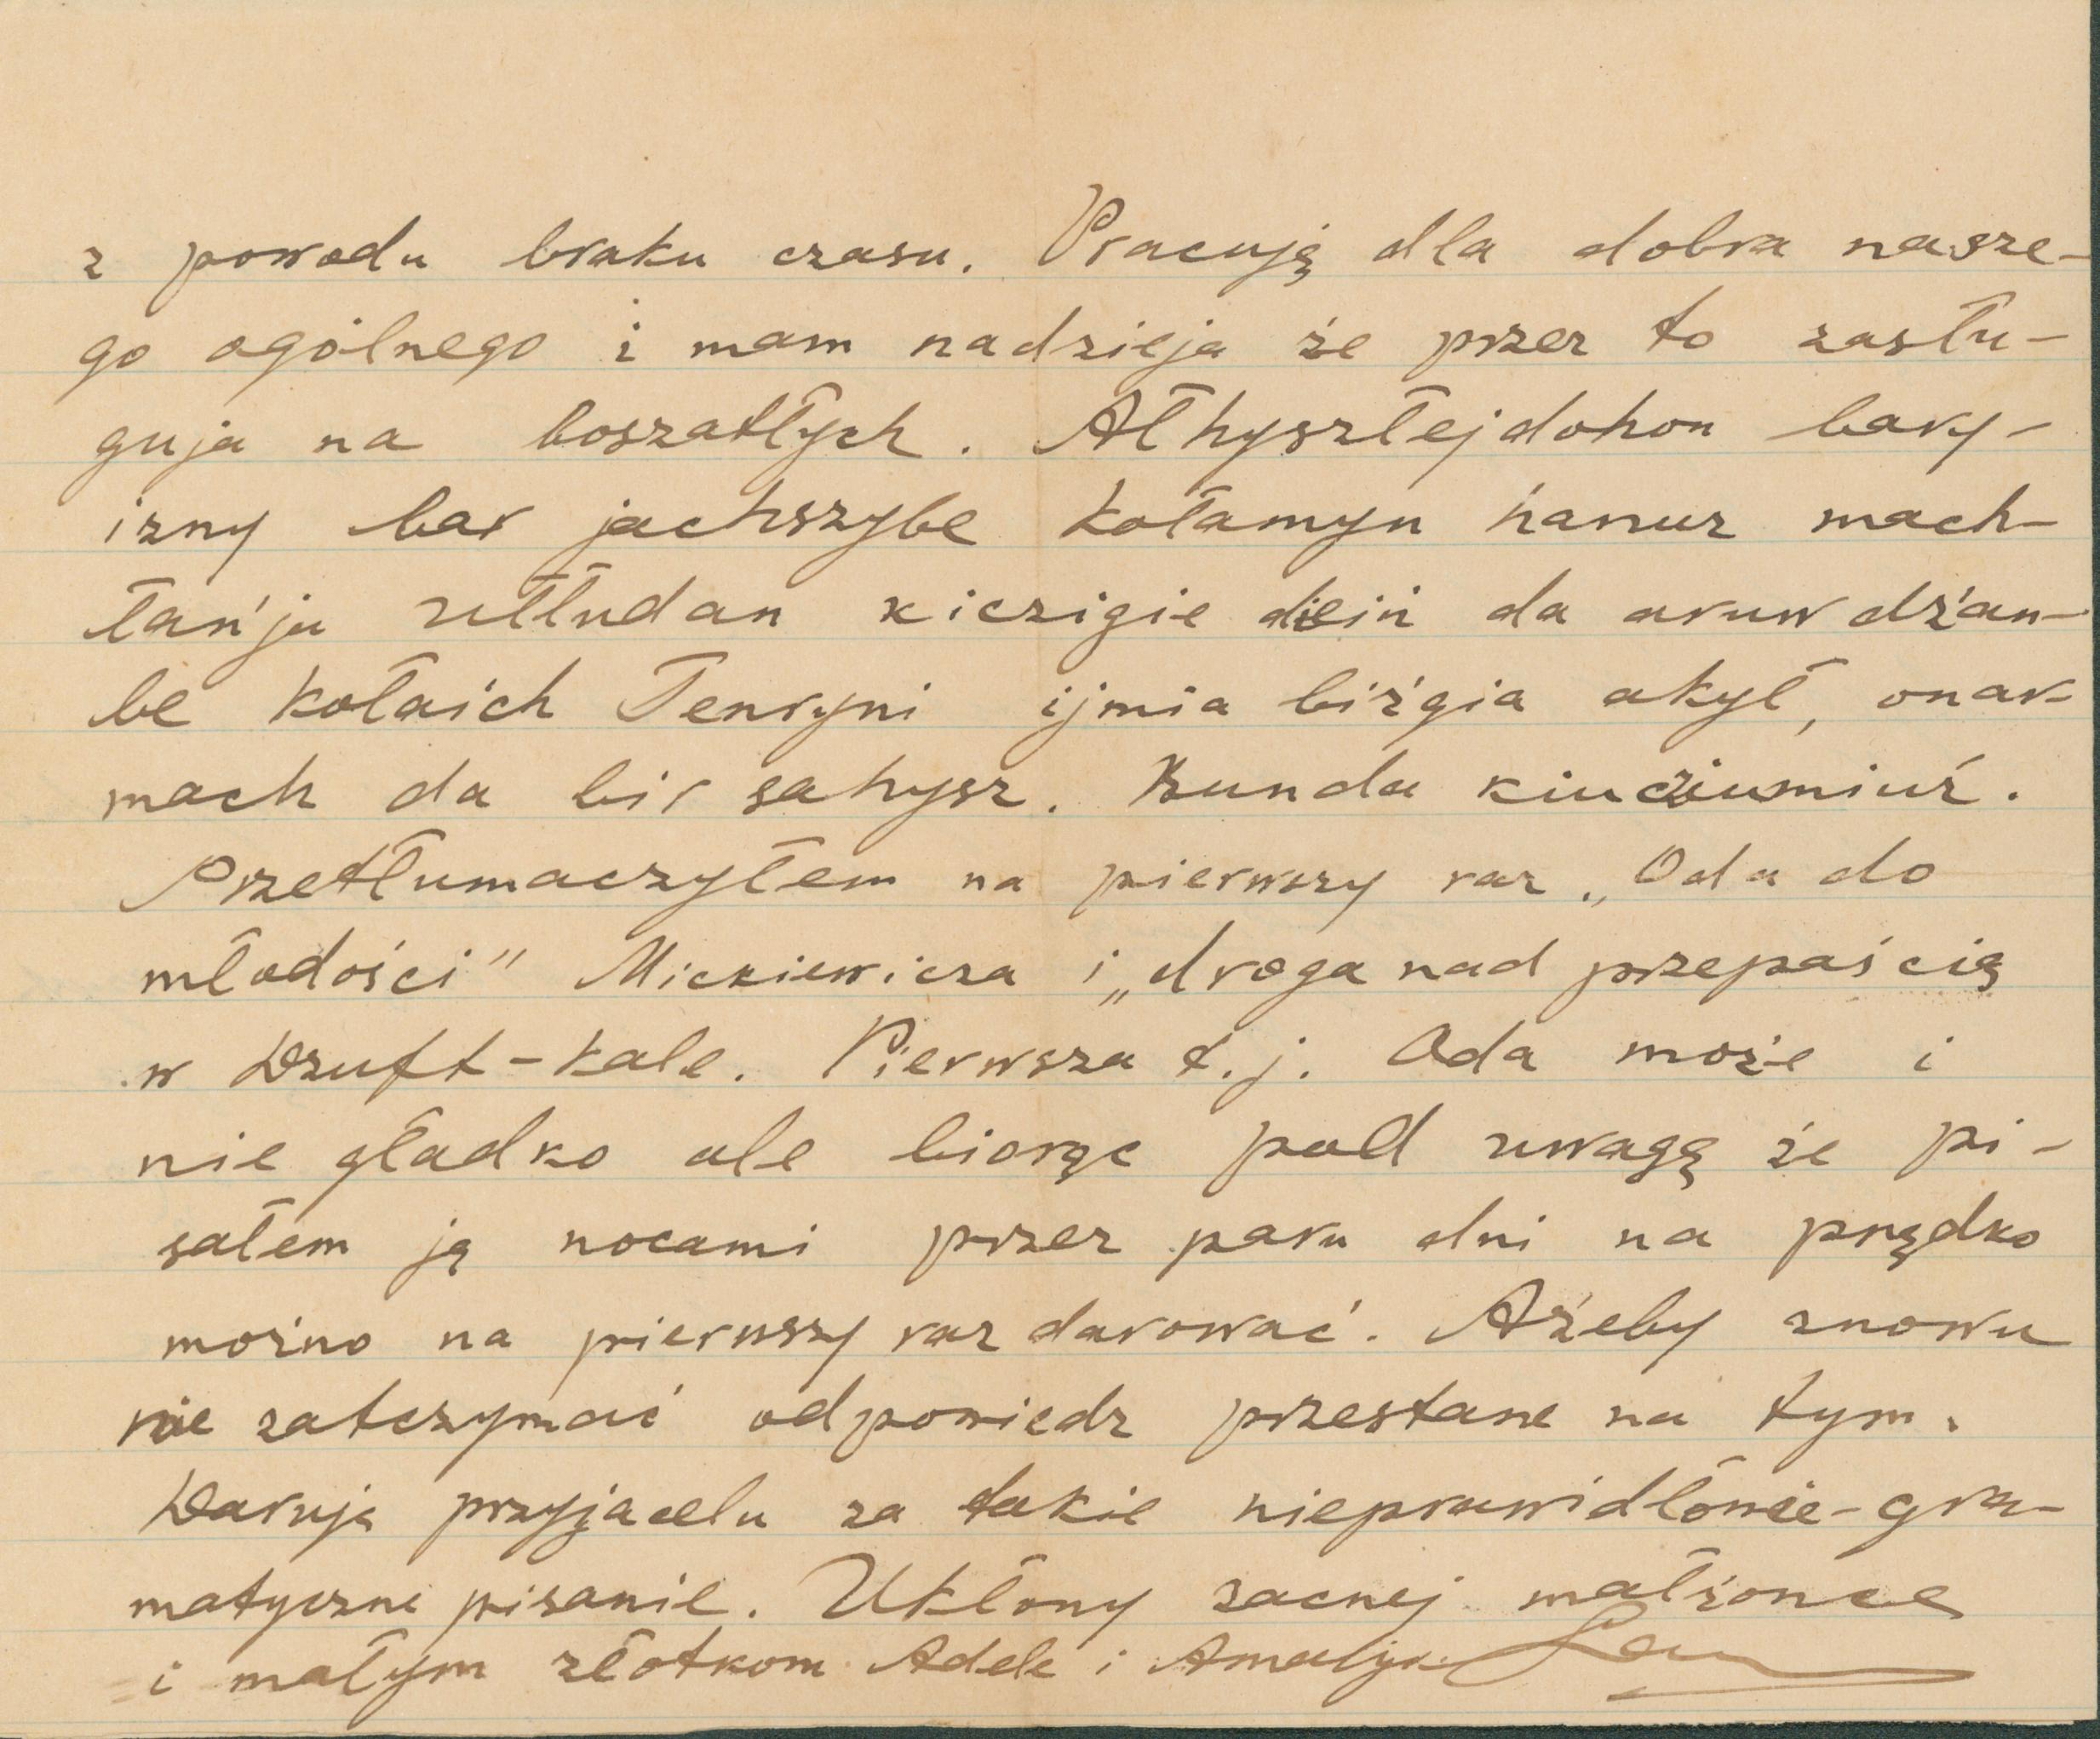 z powodu braku czasu. Pracują dla dobra nasze-
go ogólnego i mam nadzieja że przez to zasłu-
guja na boszatłych. Ałhyszłejdohon bary-
izny bar jachszybe kołamyn hanuz mach-
tań'ju ułłudan kiczigie diejń da aruw dżan-
be kołaich Tenryni ijmia biźgia akył, onar-
mach da bir sahysz. Bunda kiucziumiuź.
Przetłumaczyłem na pierwszy raz „Oda do
młodości" Mickiewicza i „droga nad przepaścią
w Dzuft-Kale. Pierwsza t.j. Oda może i
nie gładko ale biorąc pod uwagą że pi-
sałem ją nocami przez paru dni na prądko
możno na pierwszy raz darować. Ażeby znowu
nie zatczymać odpowiedz przestane na tym.
Daruja przyjacelu za takie nieprawidłowie-gra-
matyczne pisanie. Ukłony zacnej małżonce
i małym złotkom Adele i Amelji